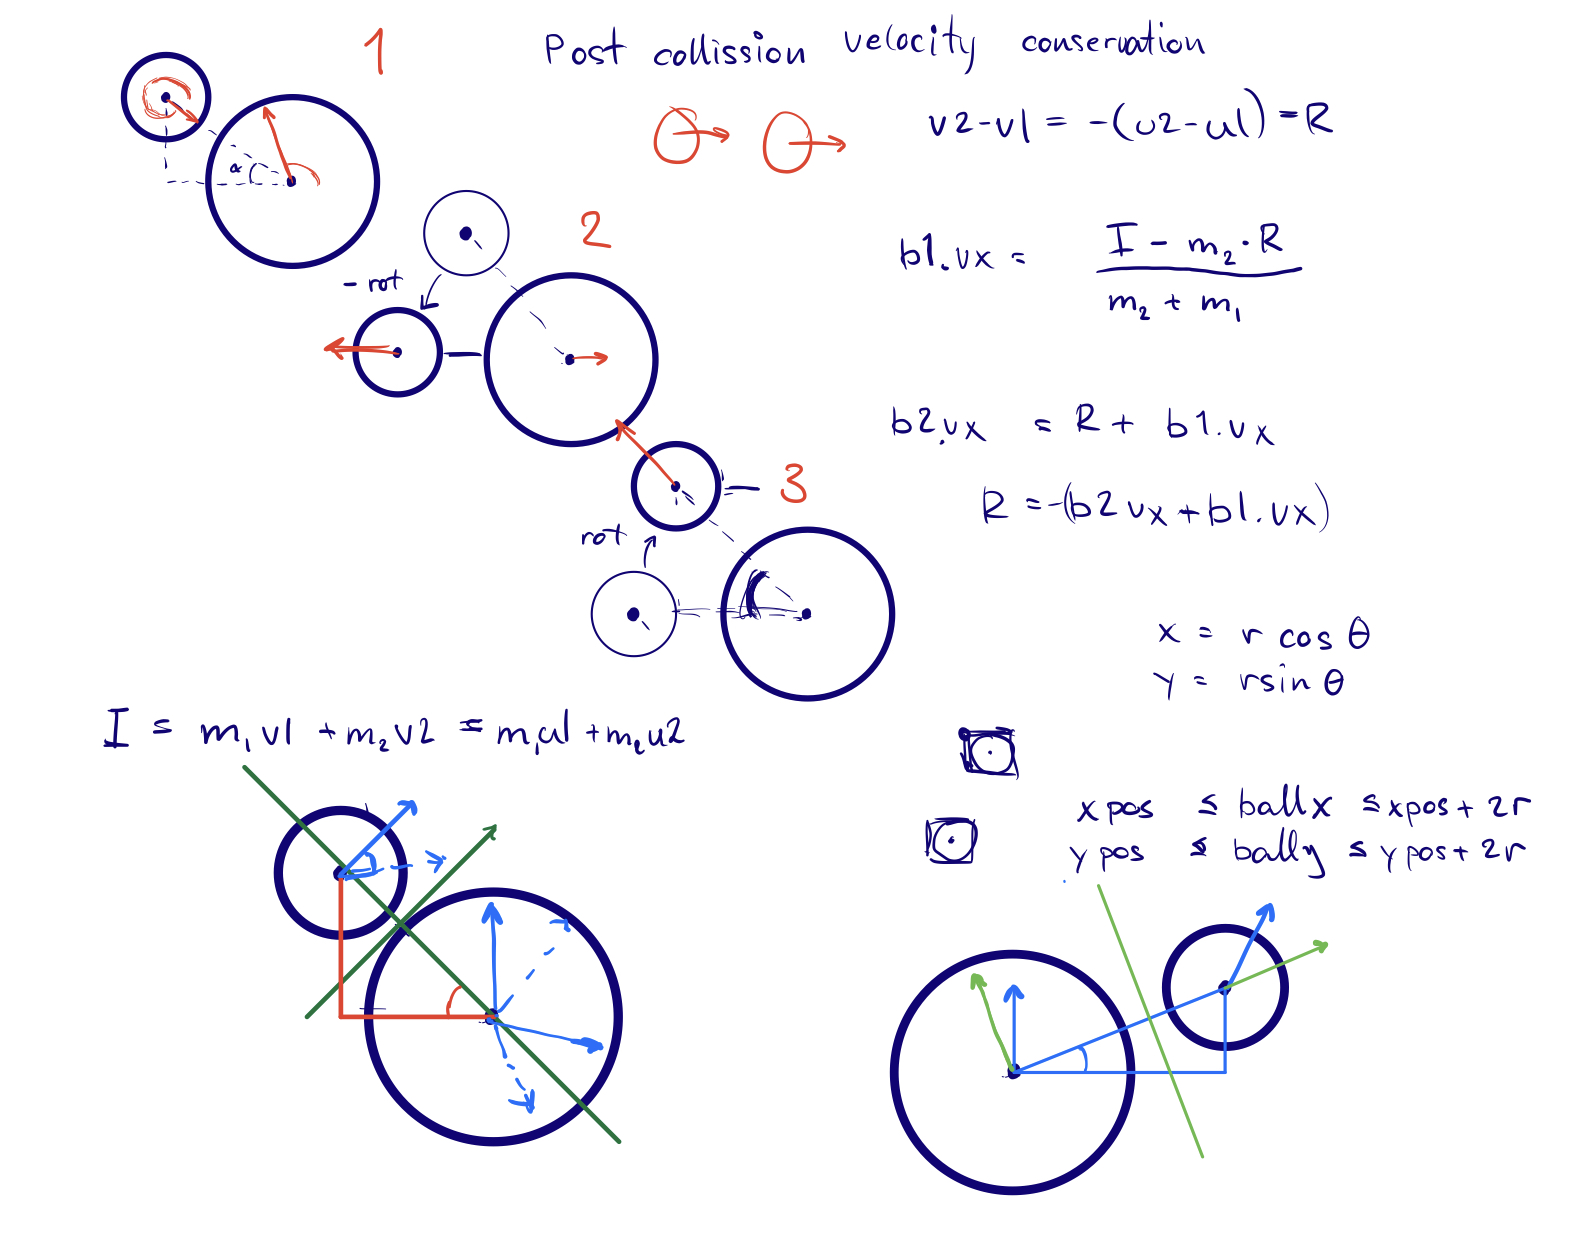 1
Post collission velocity conservation
v2-v1 = -(u2-u1) = R
α
2
b1.vx = I - m₂·R
m₂ + m₁
- rot
b2.vx = R + b1.vx
3
R = -(b2vx+b1.vx)
rot
x = r cos θ
y = rsin θ
I = m₁v1 + m₂v2 = m₁u1 + m₂u2
xpos ≤ ballx ≤ xpos + 2r
ypos ≤ bally ≤ ypos + 2r